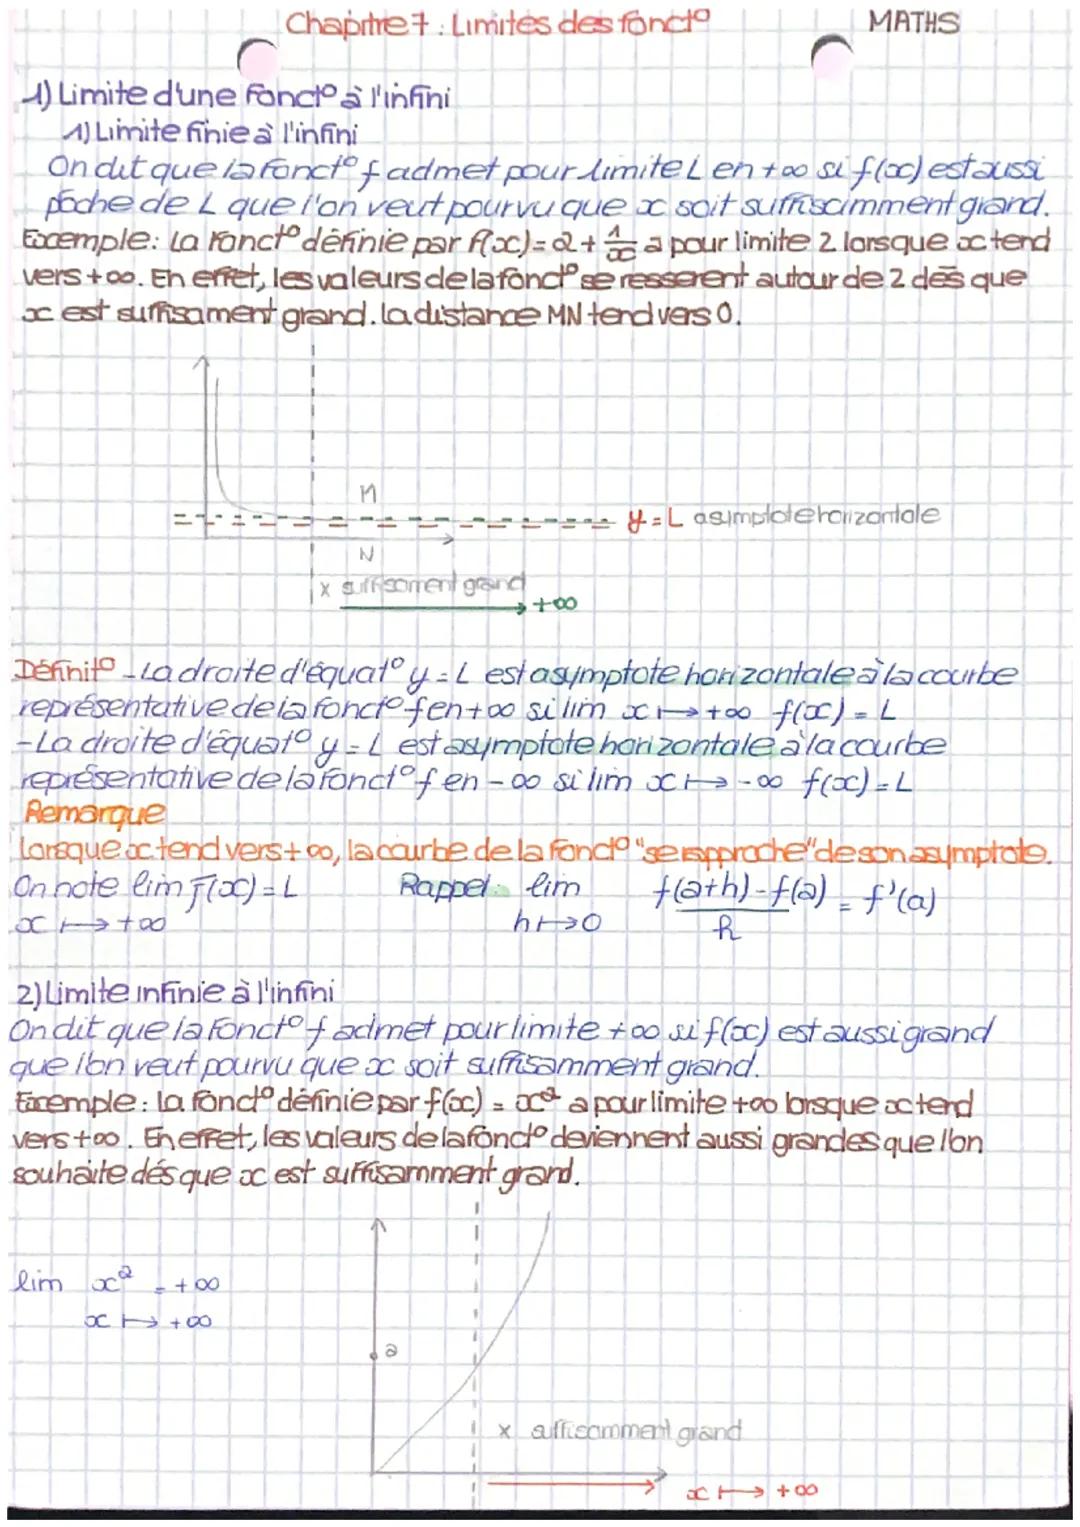 Chapitre 7 : Limites des fonct°
MATHS
1) Limite d'une fonct° à l'infini
1) Limite finie à l'infini
On dit que la fonct° f admet pour limite L en +∞ si f(x) est aussi
proche de L que l'on veut pourvu que x soit suffiscimment grand.
Exemple : La fonct° définie par f(x) = 2 + 1/x a pour limite 2 lorsque x tend
vers +∞. En effet, les valeurs de la fonct° se resserent autour de 2 dès que
x est suffisament grand. la distance MN tend vers 0.
M
y = L asymptote horizontale
N
x suffisament grand
+∞
Définit° - La droite d'équat° y = L est asymptote horizontale à la courbe
représentative de la fonct° f en +∞ si lim x ↦ +∞ f(x) = L
- La droite d'équat° y = L est asymptote horizontale à la courbe
représentative de la fonct° f en -∞ si lim x ↦ -∞ f(x) = L
Remarque
lorsque x tend vers +∞, la courbe de la fonct° "se rapproche" de son asymptote.
On note lim f(x) = L Rappel : lim f(a+h) - f(a) = f'(a)
x ↦ +∞ h ↦ 0 h
2) Limite infinie à l'infini
On dit que la fonct° f admet pour limite +∞ si f(x) est aussi grand
que l'on veut pourvu que x soit suffisamment grand.
Exemple : la fonct° définie par f(x) = x² a pour limite +∞ lorsque x tend
vers +∞. En effet, les valeurs de la fonct° deviennent aussi grandes que l'on
souhaite dés que x est suffisamment grand.
lim x² = +∞
x ↦ +∞
a
x suffisamment grand
x ↦ +∞